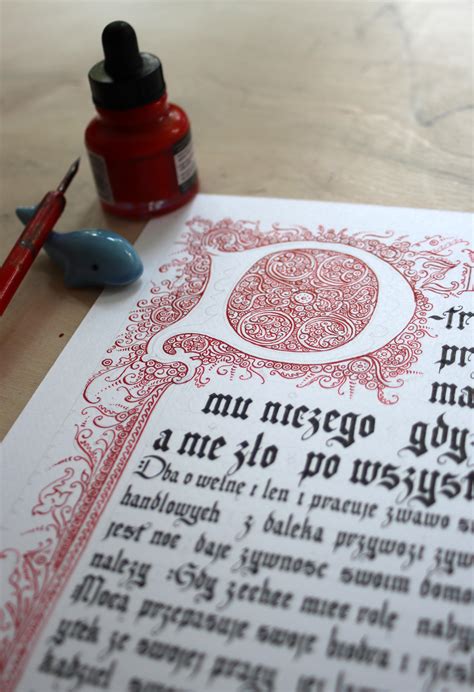 P
-tr
pr
ma
mu niczego gdy
a nie zło po wszyst
Dba o wełnę i len i pracuje żwawo s
handlowych z daleka przywozi żyw
jest noc daje żywność swoim domo
należy Gdy zechce mieć rolę naby
Mocą przepasuje swoje biodra i rześ
ytek że swojej pracy jej
kądziel